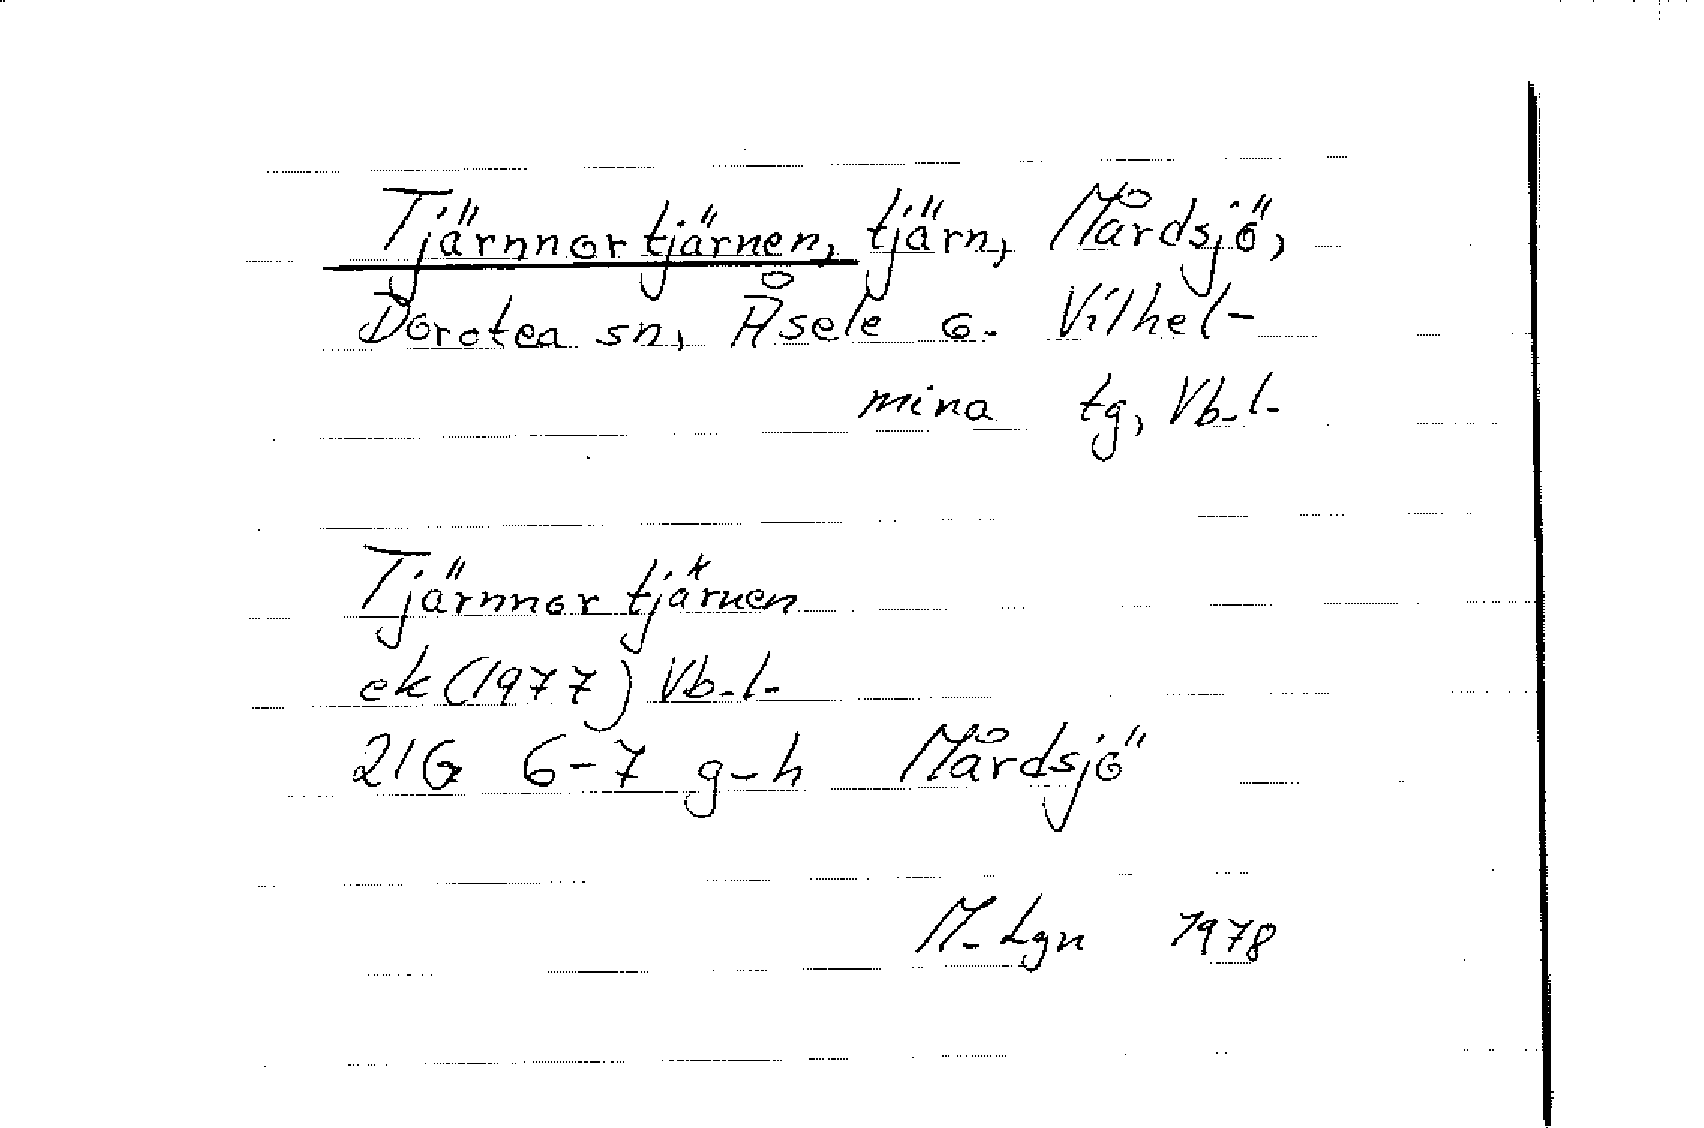 Tjärnnortjärnen, tjärn, Mårdsjö,
Dorotea sn, Åsele o. Vilhel-
mina tg, Vb. l.
Tjärnnortjärnen
ek (1977) Vb. l.
21G 6-7 g-h Mårdsjö
M. Lgn 1978